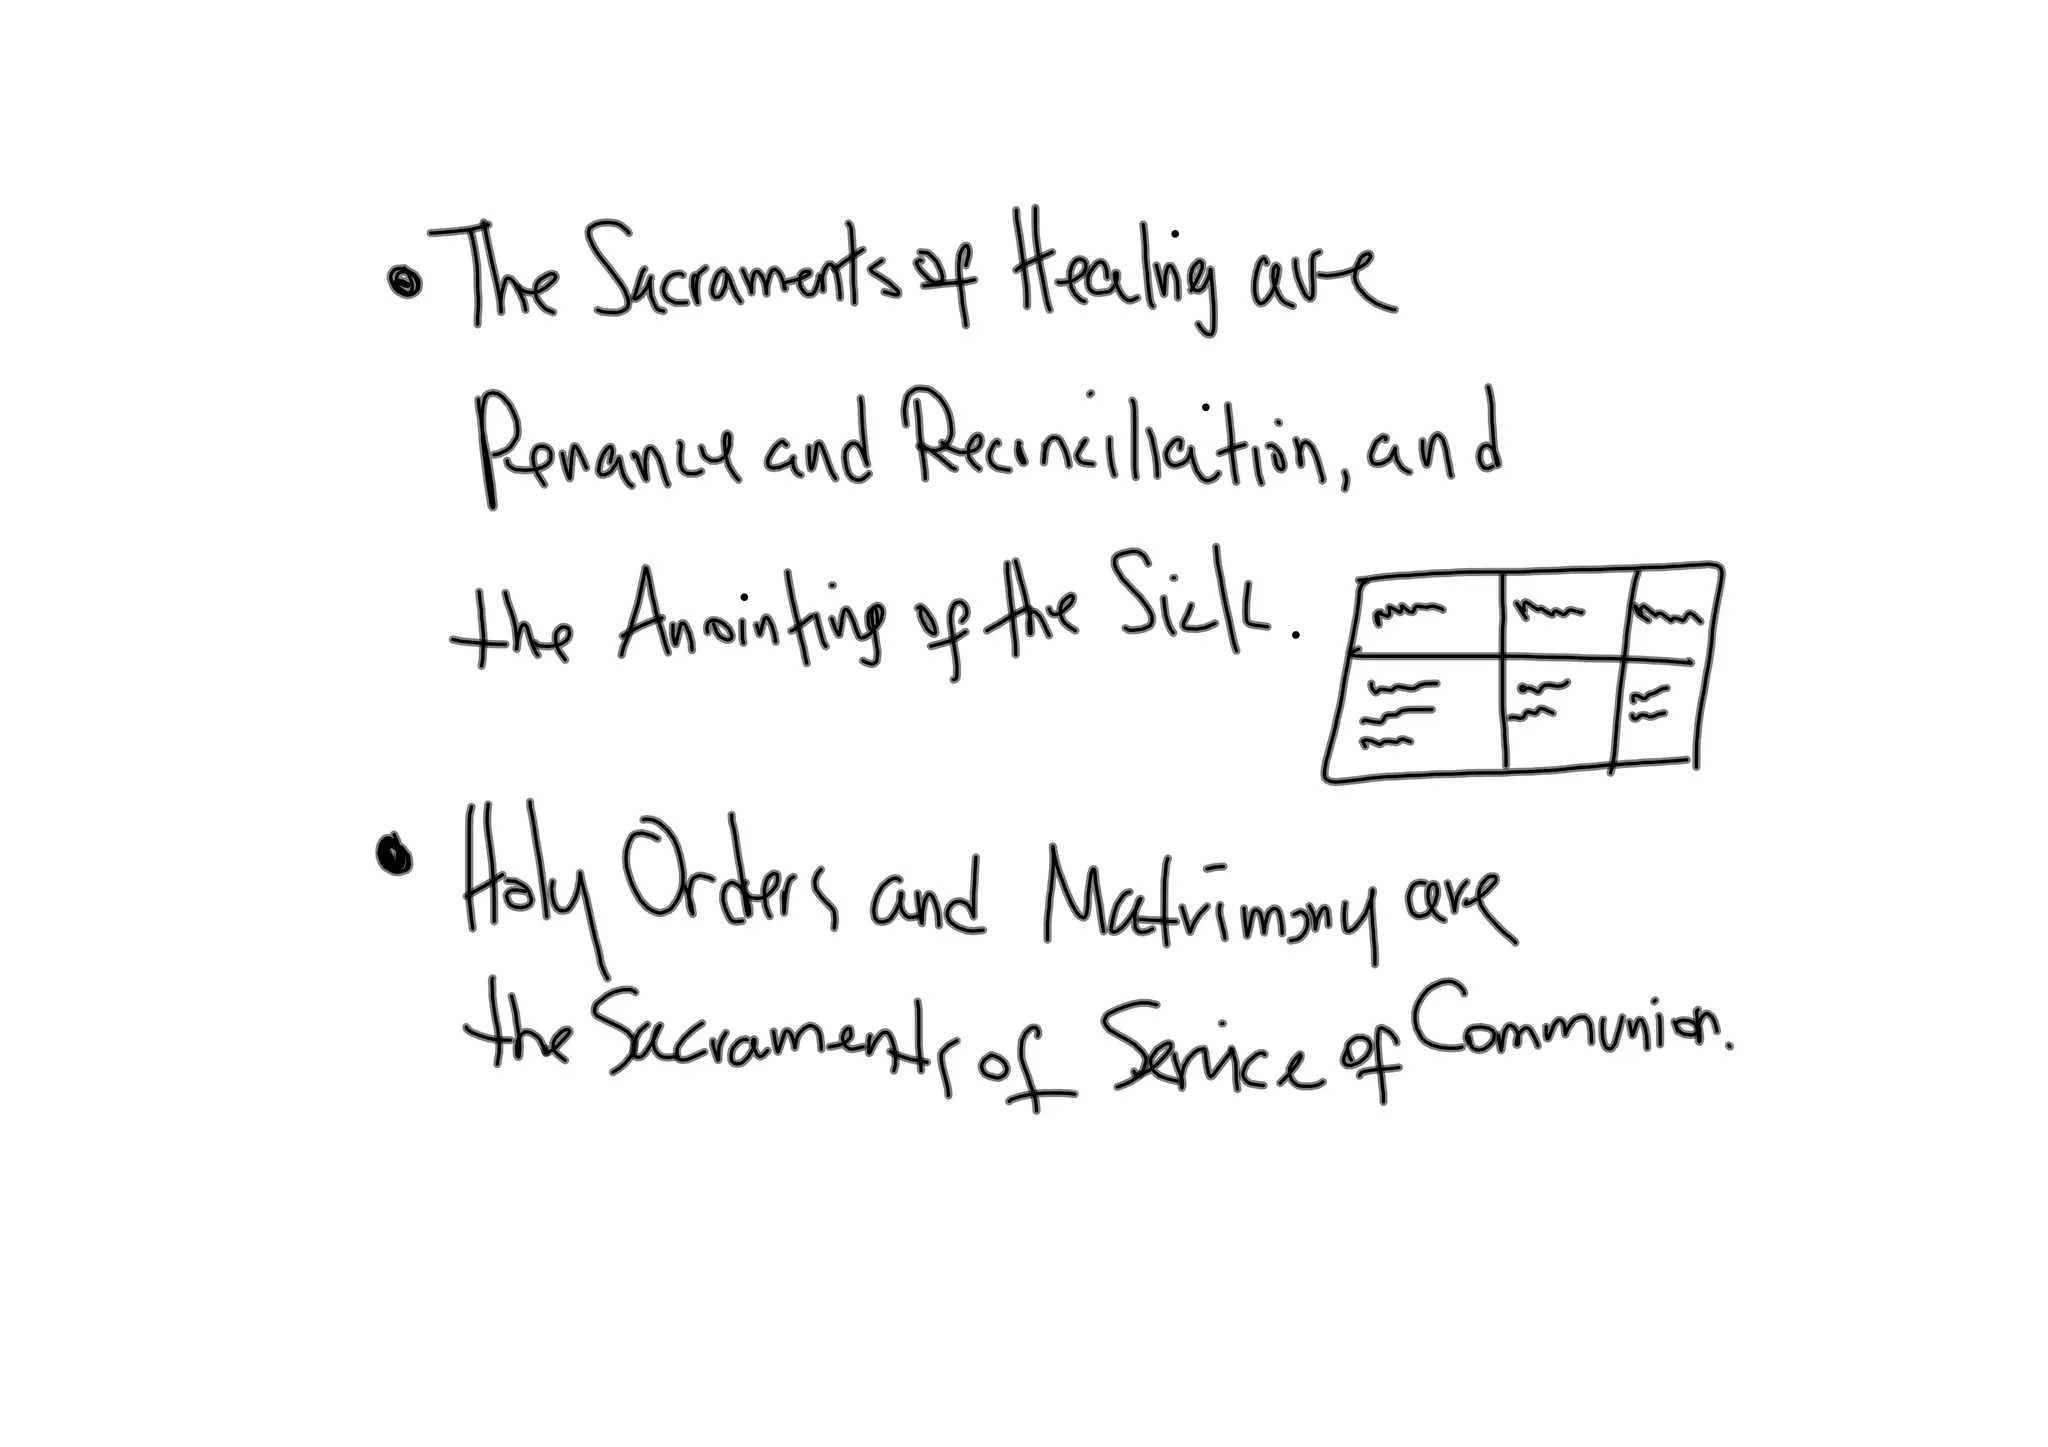 • The Sacraments of Healing are
Penance and Reconciliation, and
the Anointing of the Sick.
• Holy Orders and Matrimony are
the Sacraments of Service of Communion.